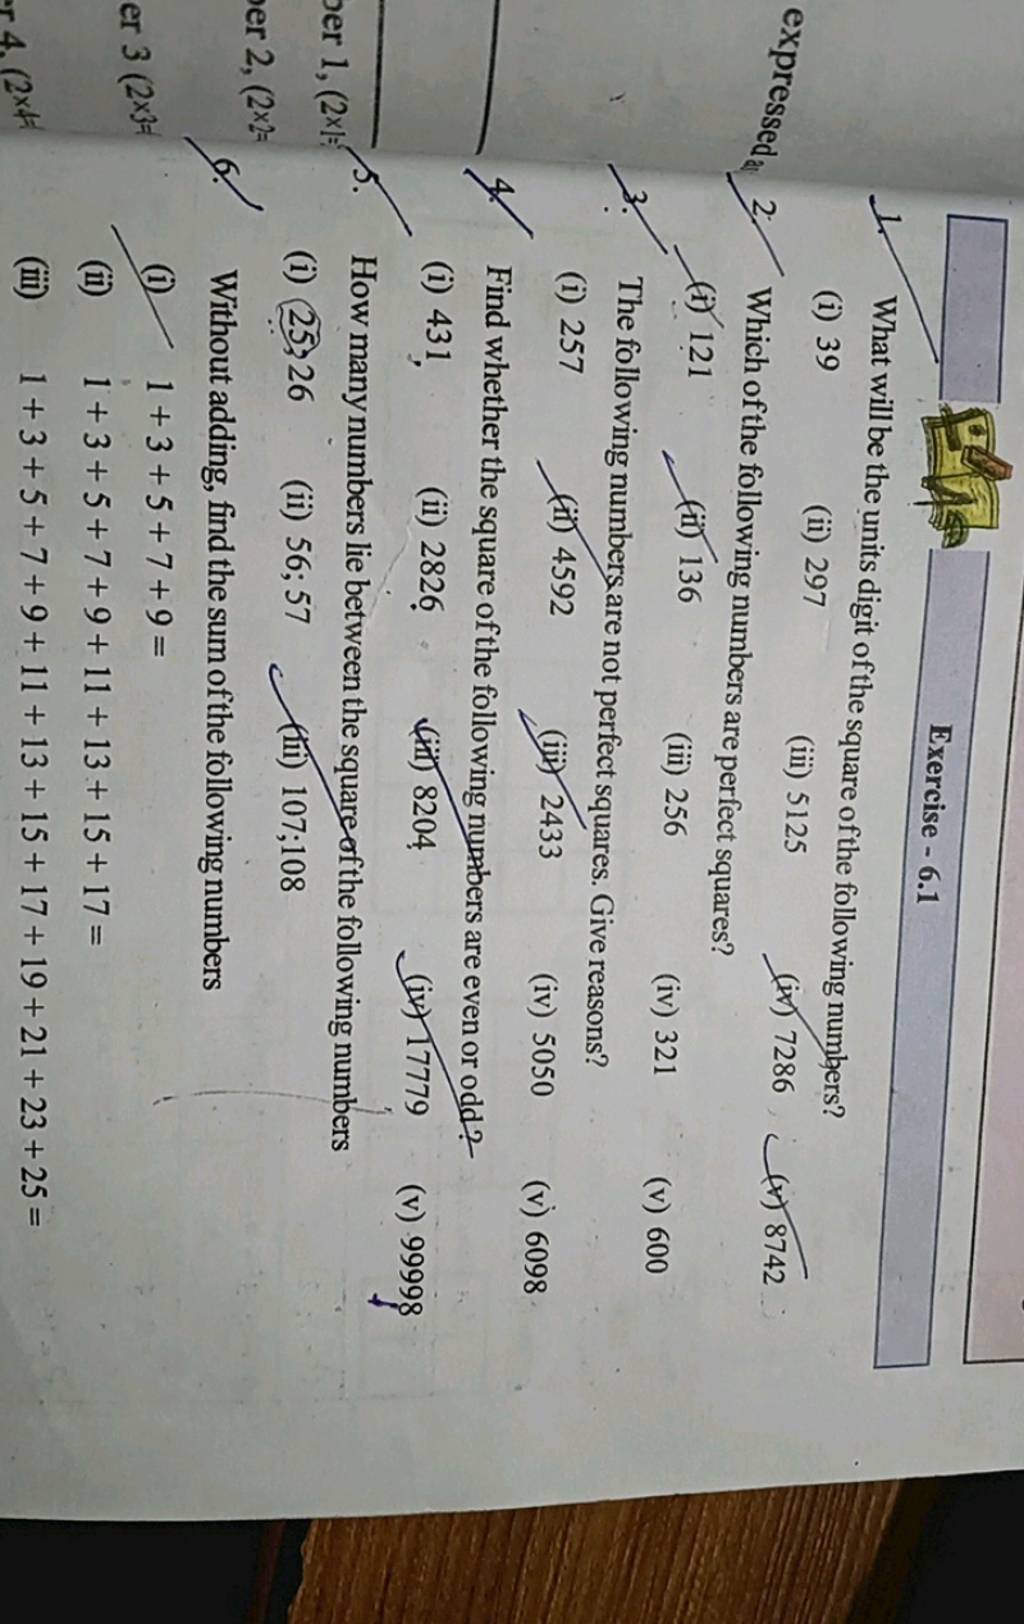 expressed
Exercise - 6.1
1. What will be the units digit of the square of the following numbers?
(i) 39 (ii) 297 (iii) 5125 (iv) 7286 (v) 8742
2. Which of the following numbers are perfect squares?
(i) 121 (ii) 136 (iii) 256 (iv) 321 (v) 600
3. The following numbers are not perfect squares. Give reasons?
(i) 257 (ii) 4592 (iii) 2433 (iv) 5050 (v) 6098
4. Find whether the square of the following numbers are even or odd?
(i) 431 (ii) 2826 (iii) 8204 (iv) 17779 (v) 99998
5. How many numbers lie between the square of the following numbers
(i) 25; 26 (ii) 56; 57 (iii) 107;108
6. Without adding, find the sum of the following numbers
(i) 1 + 3 + 5 + 7 + 9 =
(ii) 1 + 3 + 5 + 7 + 9 + 11 + 13 + 15 + 17 =
(iii) 1 + 3 + 5 + 7 + 9 + 11 + 13 + 15 + 17 + 19 + 21 + 23 + 25 =
ber 1, (2×1=
ber 2, (2×2=
er 3 (2×3=
r 4, (2×4=